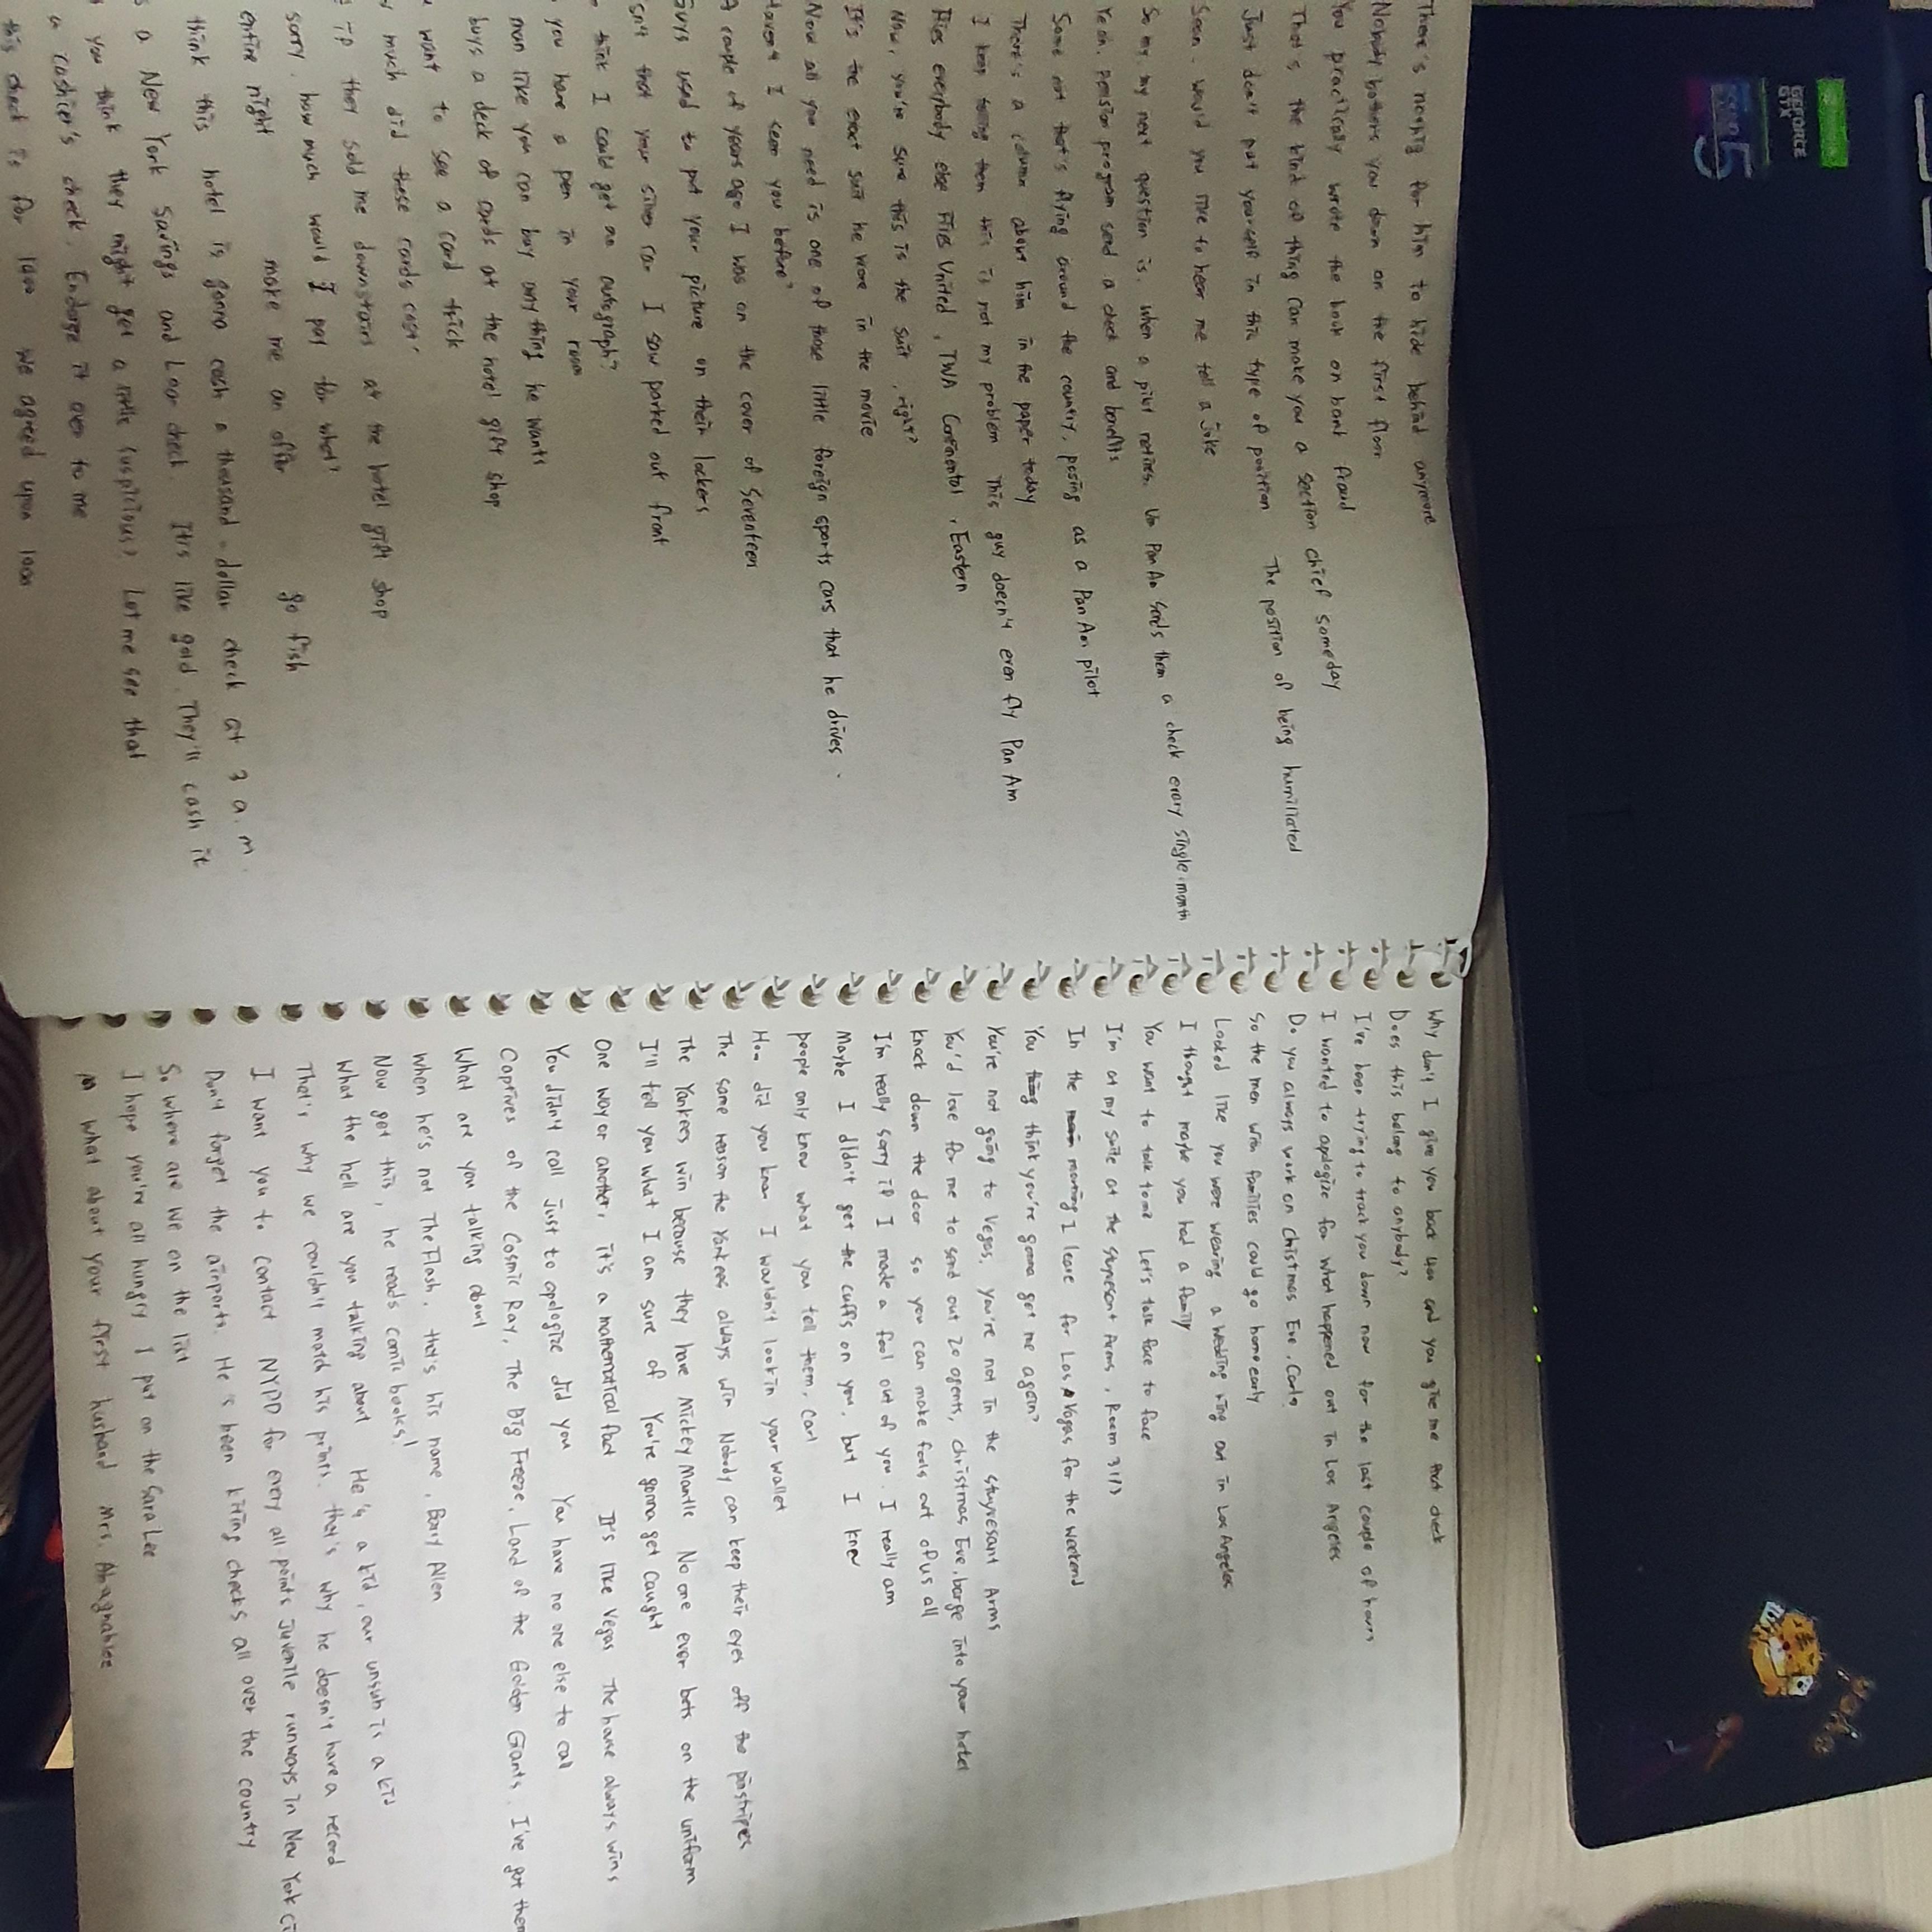 There's nothing for him to hide behind anymore
Nobody bothers you down on the first floor
You practically wrote the book on bank fraud
That's the kind of thing can make you a section chief someday
Just don't put yourself in this type of position The position of being humiliated
Sean, would you like to hear me tell a joke
So my my next question is, when a pilot retires, Um PanAm sends them a check every single month
Yeah, Pension program send a check and benefits
Some nut that's flying around the country, posing as a PanAm pilot
There's a column about him in the paper today
I keep telling them this is not my problem This guy doesn't even fly Pan Am
Flies everybody else Flies United, TWA Continental, Eastern
Now, you're sure this is the suit, right?
It's the exact suit he wore in the movie
Now all you need is one of those little foreign sports cars that he drives.
Haven't I seen you before?
A couple of years ago I was on the cover of Seventeen
Guys used to put your picture on their lockers
that your silver car I saw parked out front
think I could get an autograph?
you have a pen in your room
man like you can buy anything he wants
buys a deck of cards at the hotel gift shop
want to see a card trick
much did these cards cost?
they sold me downstairs at the hotel gift shop
sorry, how much would I pay for what?
entire night make me an offer go fish
think this hotel is gonna cash a thousand-dollar check at 3 a.m.
a New York Savings and Loan check. It's like gold. They'll cash it
you think they might get a little suspicious? Let me see that
a cashier's check. Endorge it over to me
this check is for 1400 We agreed upon 1000
Why don't I give you back 400 and you give me that check
Does this belong to anybody?
I've been trying to track you down now for the last couple of hours
I wanted to apologize for what happened out in Los Angeles
Do you always work on Christmas Eve, Carl?
So the men with families could go home early
Looked like you were wearing a wedding ring out in Los Angeles
I thought maybe you had a family
You want to talk to me Let's talk face to face
I'm at my suite at the Stuyvesant Arms, Room 3113
In the morning I leave for Las Vegas for the weekend
You think you're gonna get me again?
You're not going to Vegas. you're not in the Stuyvesant Arms
You'd love for me to send out 20 agents, christmas Eve, barge into your hotel
knock down the door so you can make fools out of us all
I'm really sorry if I made a fool out of you. I really am
Maybe I didn't get the cuffs on you, but I knew
People only know what you tell them, Carl
How did you know I wouldn't look in your wallet
The same reason the Yankees always win Nobody can keep their eyes off the pinstripes
The Yankees win because they have Mickey Mantle No one ever bets on the uniform
I'll tell you what I am sure of You're gonna get caught
One way or another, it's a mathematical fact It's like Vegas The house always wins
You didn't call just to apologize did you You have no one else to call
Captives of the Cosmic Ray, The Big Freeze, Land of the Golden Giants, I've got them
What are you talking about
When he's not The Flash, that's his name, Barry Allen
Now get this, he reads comic books!
What the hell are you talking about He's a kid, our unsub is a kid
That's why we couldn't match his prints. that's why he doesn't have a record
I want you to contact NYPD for every all points Juvenile runways in New York Ci
Don't forget the airports. He's been kiting checks all over the country
So where are we on the list
I hope you're all hungry I put on the Sara Lee
What about your first husband Mrs. Abagnahlee
GEFORCE
GTX
5